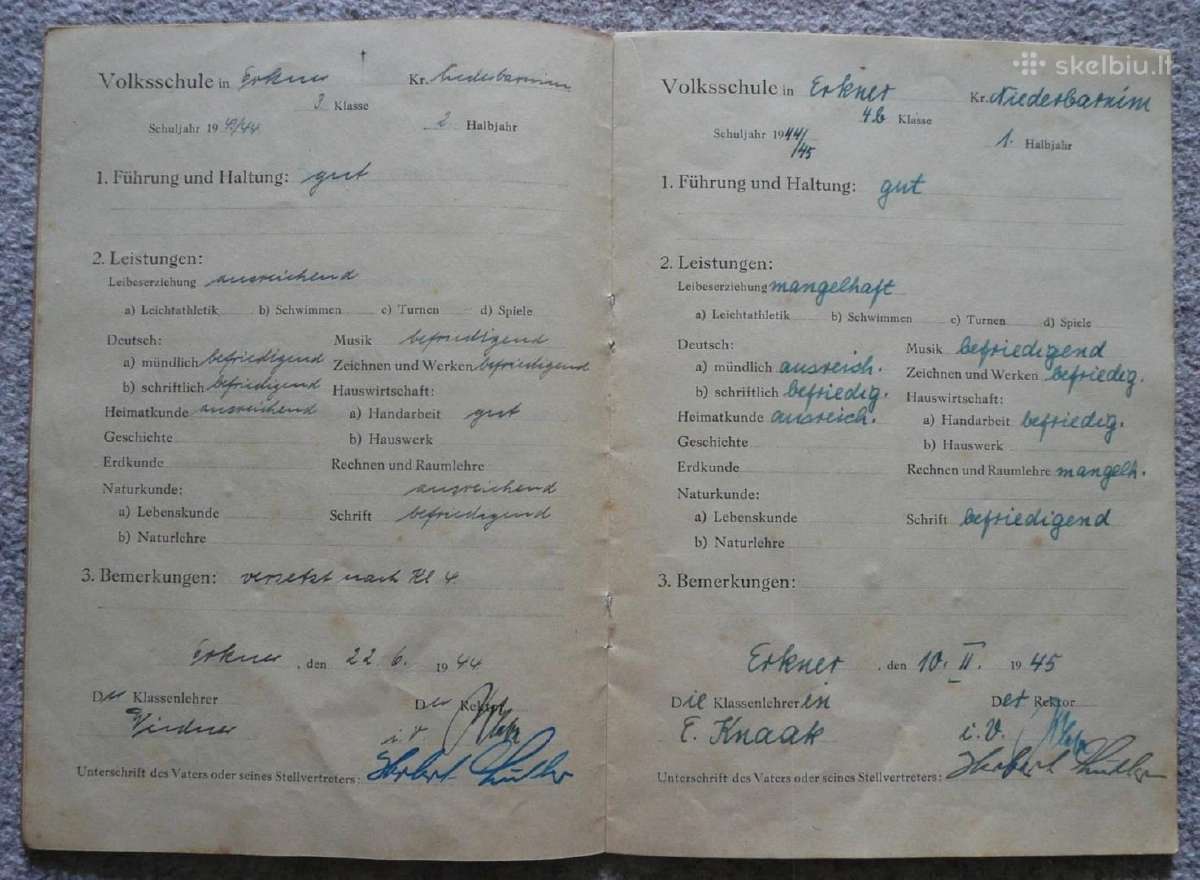 Volksschule in Erkner Kr. Niederbarnim
3 Klasse
Schuljahr 1943/44 2. Halbjahr
1. Führung und Haltung: gut
2. Leistungen:
Leibeserziehung ausreichend
a) Leichtathletik b) Schwimmen c) Turnen d) Spiele
Deutsch: Musik befriedigend
a) mündlich befriedigend Zeichnen und Werken befriedigend
b) schriftlich befriedigend Hauswirtschaft:
Heimatkunde ausreichend a) Handarbeit gut
Geschichte b) Hauswerk
Erdkunde Rechnen und Raumlehre
Naturkunde: ausreichend
a) Lebenskunde Schrift befriedigend
b) Naturlehre
3. Bemerkungen: versetzt nach Kl 4
Erkner, den 22.6. 1944
Der Klassenlehrer Der Rektor
i.V.
Unterschrift des Vaters oder seines Stellvertreters: Herbert
skelbiu.lt
Volksschule in Erkner Kr. Niederbarnim
4b Klasse
Schuljahr 1944/45 1. Halbjahr
1. Führung und Haltung: gut
2. Leistungen:
Leibeserziehung mangelhaft
a) Leichtathletik b) Schwimmen c) Turnen d) Spiele
Deutsch: Musik befriedigend
a) mündlich ausreich. Zeichnen und Werken befriedig.
b) schriftlich befriedig. Hauswirtschaft:
Heimatkunde ausreich. a) Handarbeit befriedig.
Geschichte b) Hauswerk
Erdkunde Rechnen und Raumlehre mangelh.
Naturkunde:
a) Lebenskunde Schrift befriedigend
b) Naturlehre
3. Bemerkungen:
Erkner, den 10. II. 1945
Die Klassenlehrerin Der Rektor
E. Knaak i.V.
Unterschrift des Vaters oder seines Stellvertreters: Herbert